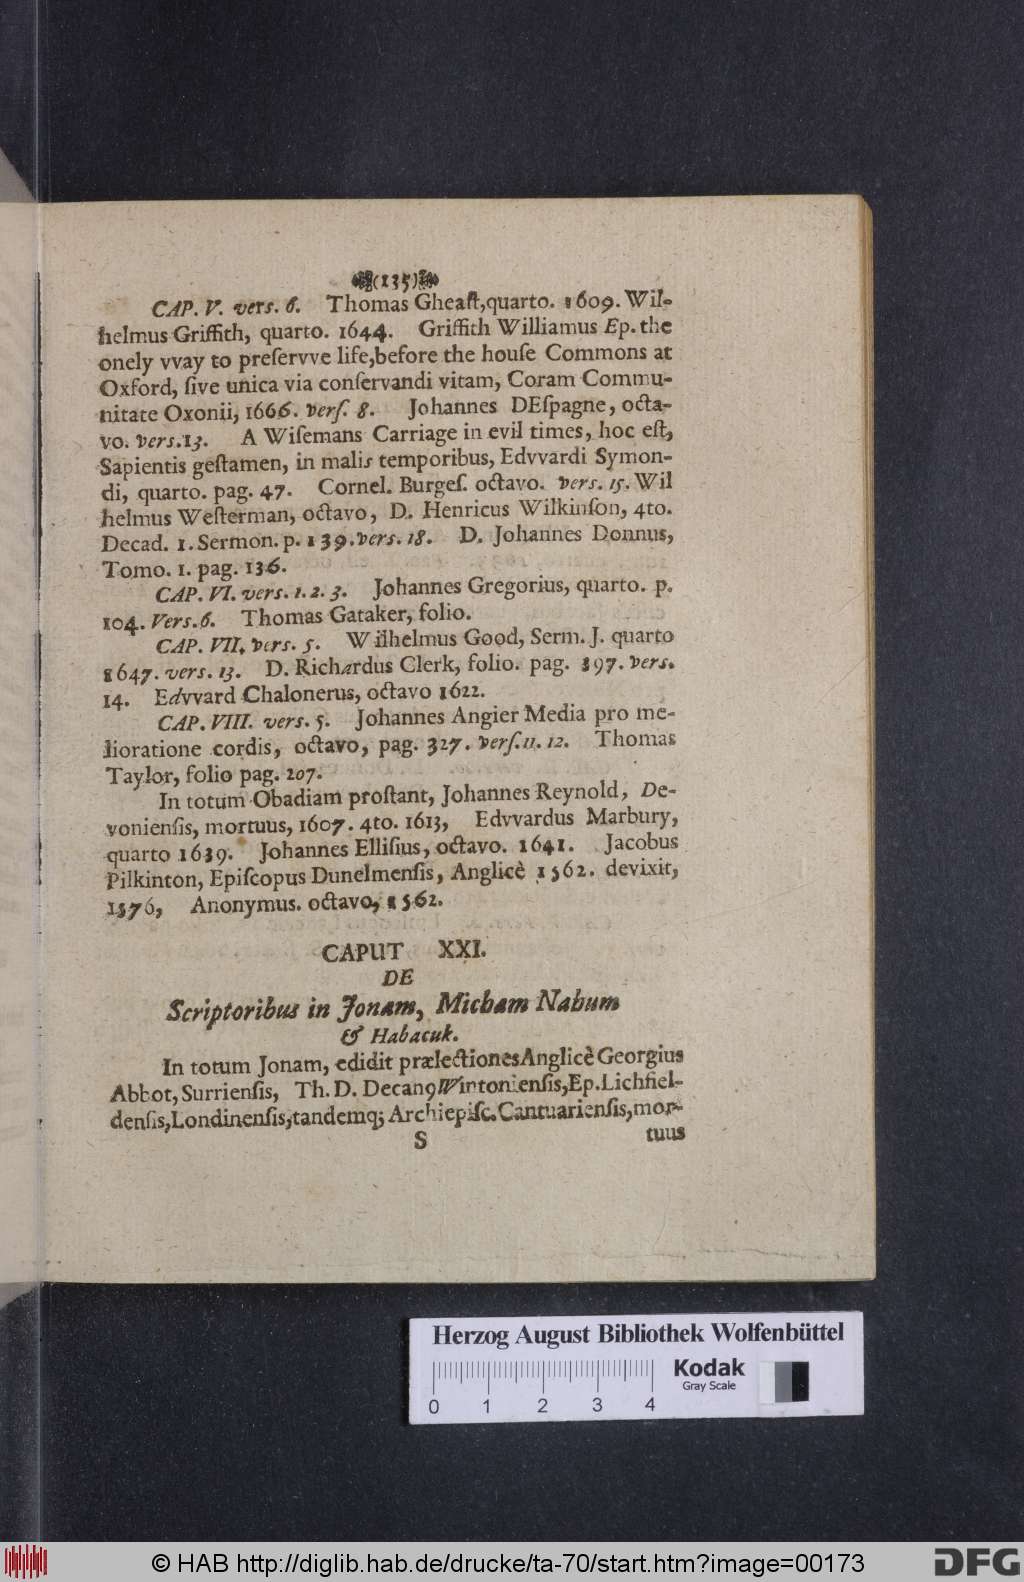 (135)
CAP. V. vers. 6. Thomas Gheaſt,quarto. 1609. Wil-
helmus Griffith, quarto. 1644. Griffith Williamus Ep. the
onely vvay to preſervve life,before the houſe Commons at
Oxford, ſive unica via conſervandi vitam, Coram Commu-
nitate Oxonii, 1666. verſ. 8. Johannes DEſpagne, octa-
vo. vers.13. A Wiſemans Carriage in evil times, hoc eſt,
Sapientis geſtamen, in malis temporibus, Edvvardi Symon-
di, quarto. pag. 47. Cornel. Burgeſ. octavo. vers. 15. Wil
helmus Weſterman, octavo, D. Henricus Wilkinſon, 4to.
Decad. 1. Sermon. p. 139.vers. 18. D. Johannes Donnus,
Tomo. 1. pag. 136.
CAP. VI. vers. 1. 2. 3. Johannes Gregorius, quarto. p.
104. Vers.6. Thomas Gataker, folio.
CAP. VII. vers. 5. Wilhelmus Good, Serm. J. quarto
1647. vers. 13. D. Richardus Clerk, folio. pag. 397. vers.
14. Edvvard Chalonerus, octavo 1622.
CAP. VIII. vers. 5. Johannes Angier Media pro me-
lioratione cordis, octavo, pag. 327. verſ.11. 12. Thomas
Taylor, folio pag. 207.
In totum Obadiam proſtant, Johannes Reynold, De-
vonienſis, mortuus, 1607. 4to. 1613, Edvvardus Marbury,
quarto 1639. Johannes Elliſius, octavo. 1641. Jacobus
Pilkinton, Epiſcopus Dunelmenſis, Anglicè 1562. devixit,
1576, Anonymus. octavo, 1562.
CAPUT XXI.
DE
Scriptoribus in Jonam, Micham Nahum
& Habacuk.
In totum Jonam, edidit prælectionesAnglicè Georgius
Abbot, Surrienſis, Th. D. Decan9Wintonienſis,Ep.Lichfiel-
denſis,Londinenſis,tandemq; Archiepiſc.Cantuarienſis,mor-
S tuus
Herzog August Bibliothek Wolfenbüttel
Kodak
Gray Scale
0 1 2 3 4
© HAB http://diglib.hab.de/drucke/ta-70/start.htm?image=00173
DFG